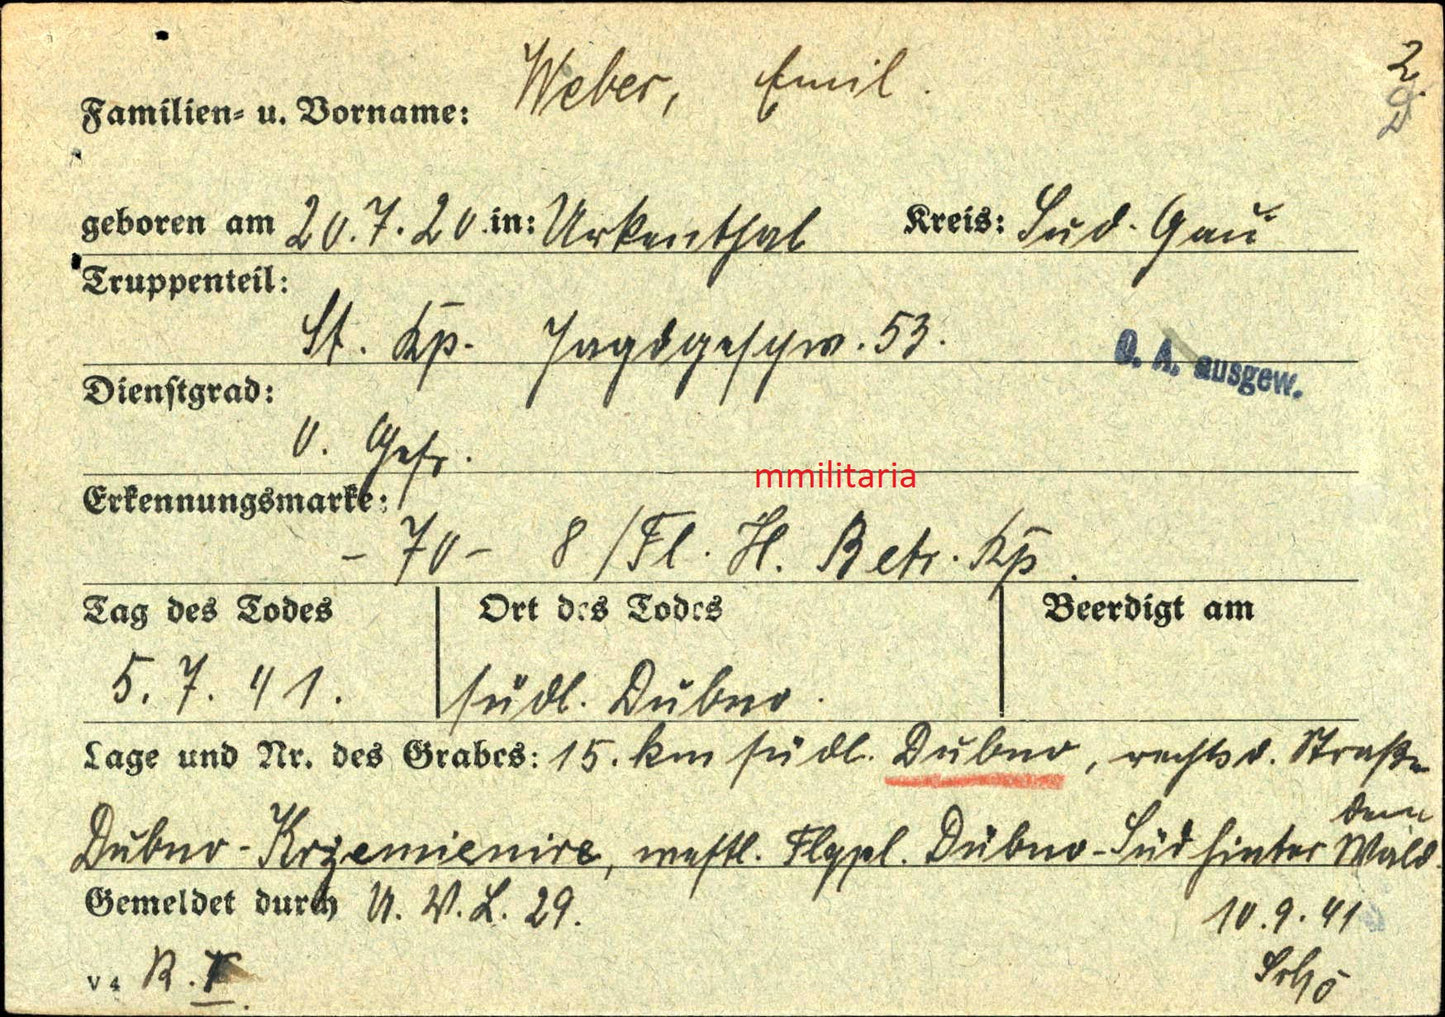 Weber, Emil.
2.
Familien- u. Vorname:
geboren am 20.7.20. in: Urkenthal Kreis: Sud. Gau
Truppenteil:
St. Kp. Jagdgeschw. 53.
O. A. ausgew.
Dienstgrad:
O. Gefr.
mmilitaria
Erkennungsmarke:
- 70 - 8 / Fl. H. Betr. Kp.
Tag des Todes Ort des Todes Beerdigt am
5. 7. 41. südl. Dubno.
Lage und Nr. des Grabes: 15. km südl. Dubno, rechts d. Straße
dem
Dubno - Krzemienice, westl. Flgpl. Dubno - Süd hinter Wald.
Gemeldet durch U. V. L. 29.
10.9.41
V 4 R.